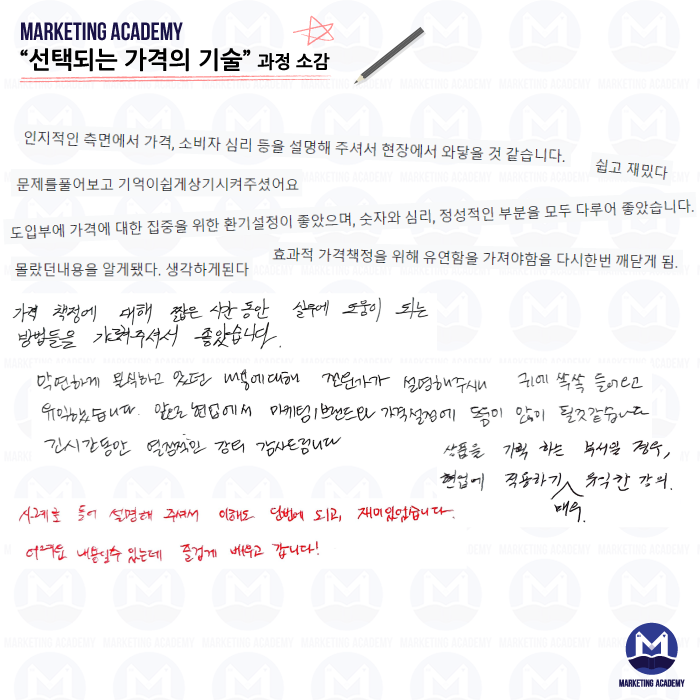 MARKETING ACADEMY
“선택되는 가격의 기술” 과정 소감
인지적인 측면에서 가격, 소비자 심리 등을 설명해 주셔서 현장에서 와닿을 것 같습니다.
쉽고 재밌다
문제를풀어보고 기억이쉽게상기시켜주셨어요
도입부에 가격에 대한 집중을 위한 환기설정이 좋았으며, 숫자와 심리, 정성적인 부분을 모두 다루어 좋았습니다.
효과적 가격책정을 위해 유연함을 가져야함을 다시한번 깨닫게 됨.
몰랐던내용을 알게됐다. 생각하게된다
가격 책정에 대해 짧은 시간동안 실무에 도움이 되는
방법들을 가르쳐주셔서 좋았습니다.
막연하게 인식하고 있던 내용에대해 전문가가 설명해주시니 귀에 쏙쏙 들어오고
유익했습니다. 앞으로 현업에서 마케팅/브랜드와 가격설정에 도움이 많이 될것같습니다
긴시간동안 열정적인 강의 감사드립니다
상품을 기획 하는 부서일 경우,
현업에 적용하기 매우 유익한 강의.
사례로 들어 설명해 주셔서 이해도 단번에 되고, 재미있었습니다.
어려운 내용일수 있는데 즐겁게 배우고 갑니다!
MARKETING ACADEMY